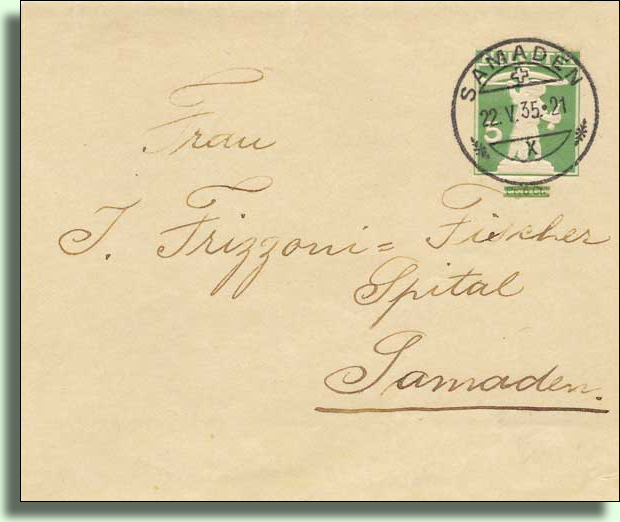 SAMADEN
22.V.35.21
5
X
Frau
J. Frizzoni = Fischer
Spital
Samaden.